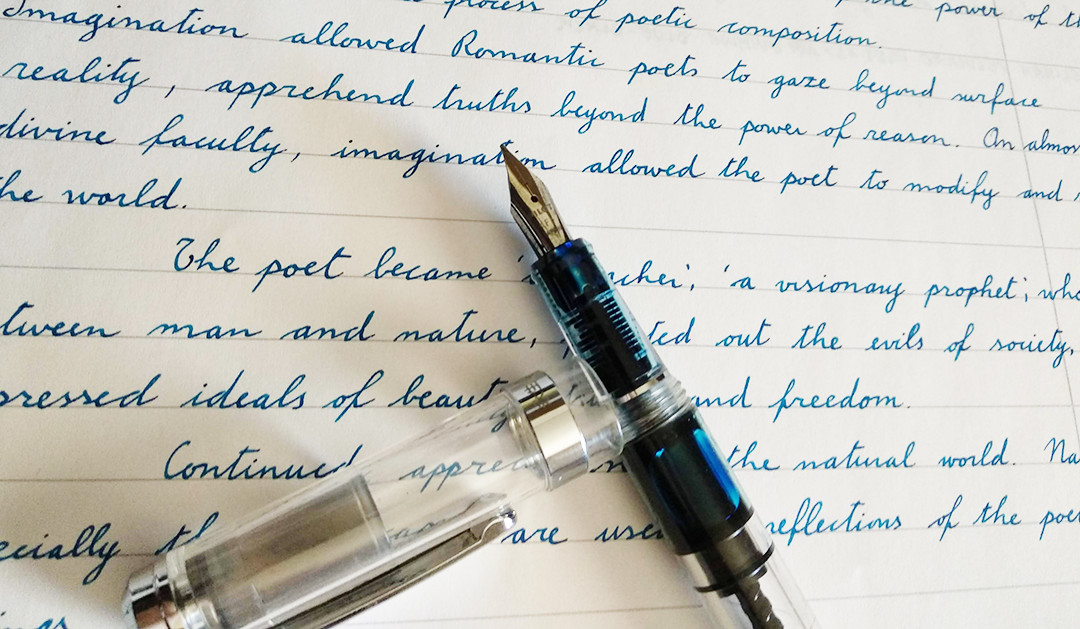 process of poetic composition. the power of
Imagination allowed Romantic poets to gaze beyond surface
reality, apprehend truths beyond the power of reason. An
divine faculty, imagination allowed the poet to modify and
the world.
The poet became 'a visionary prophet',
man and nature, out the evils of society,
ideals of and freedom.
Continued the natural world.
are reflections of the